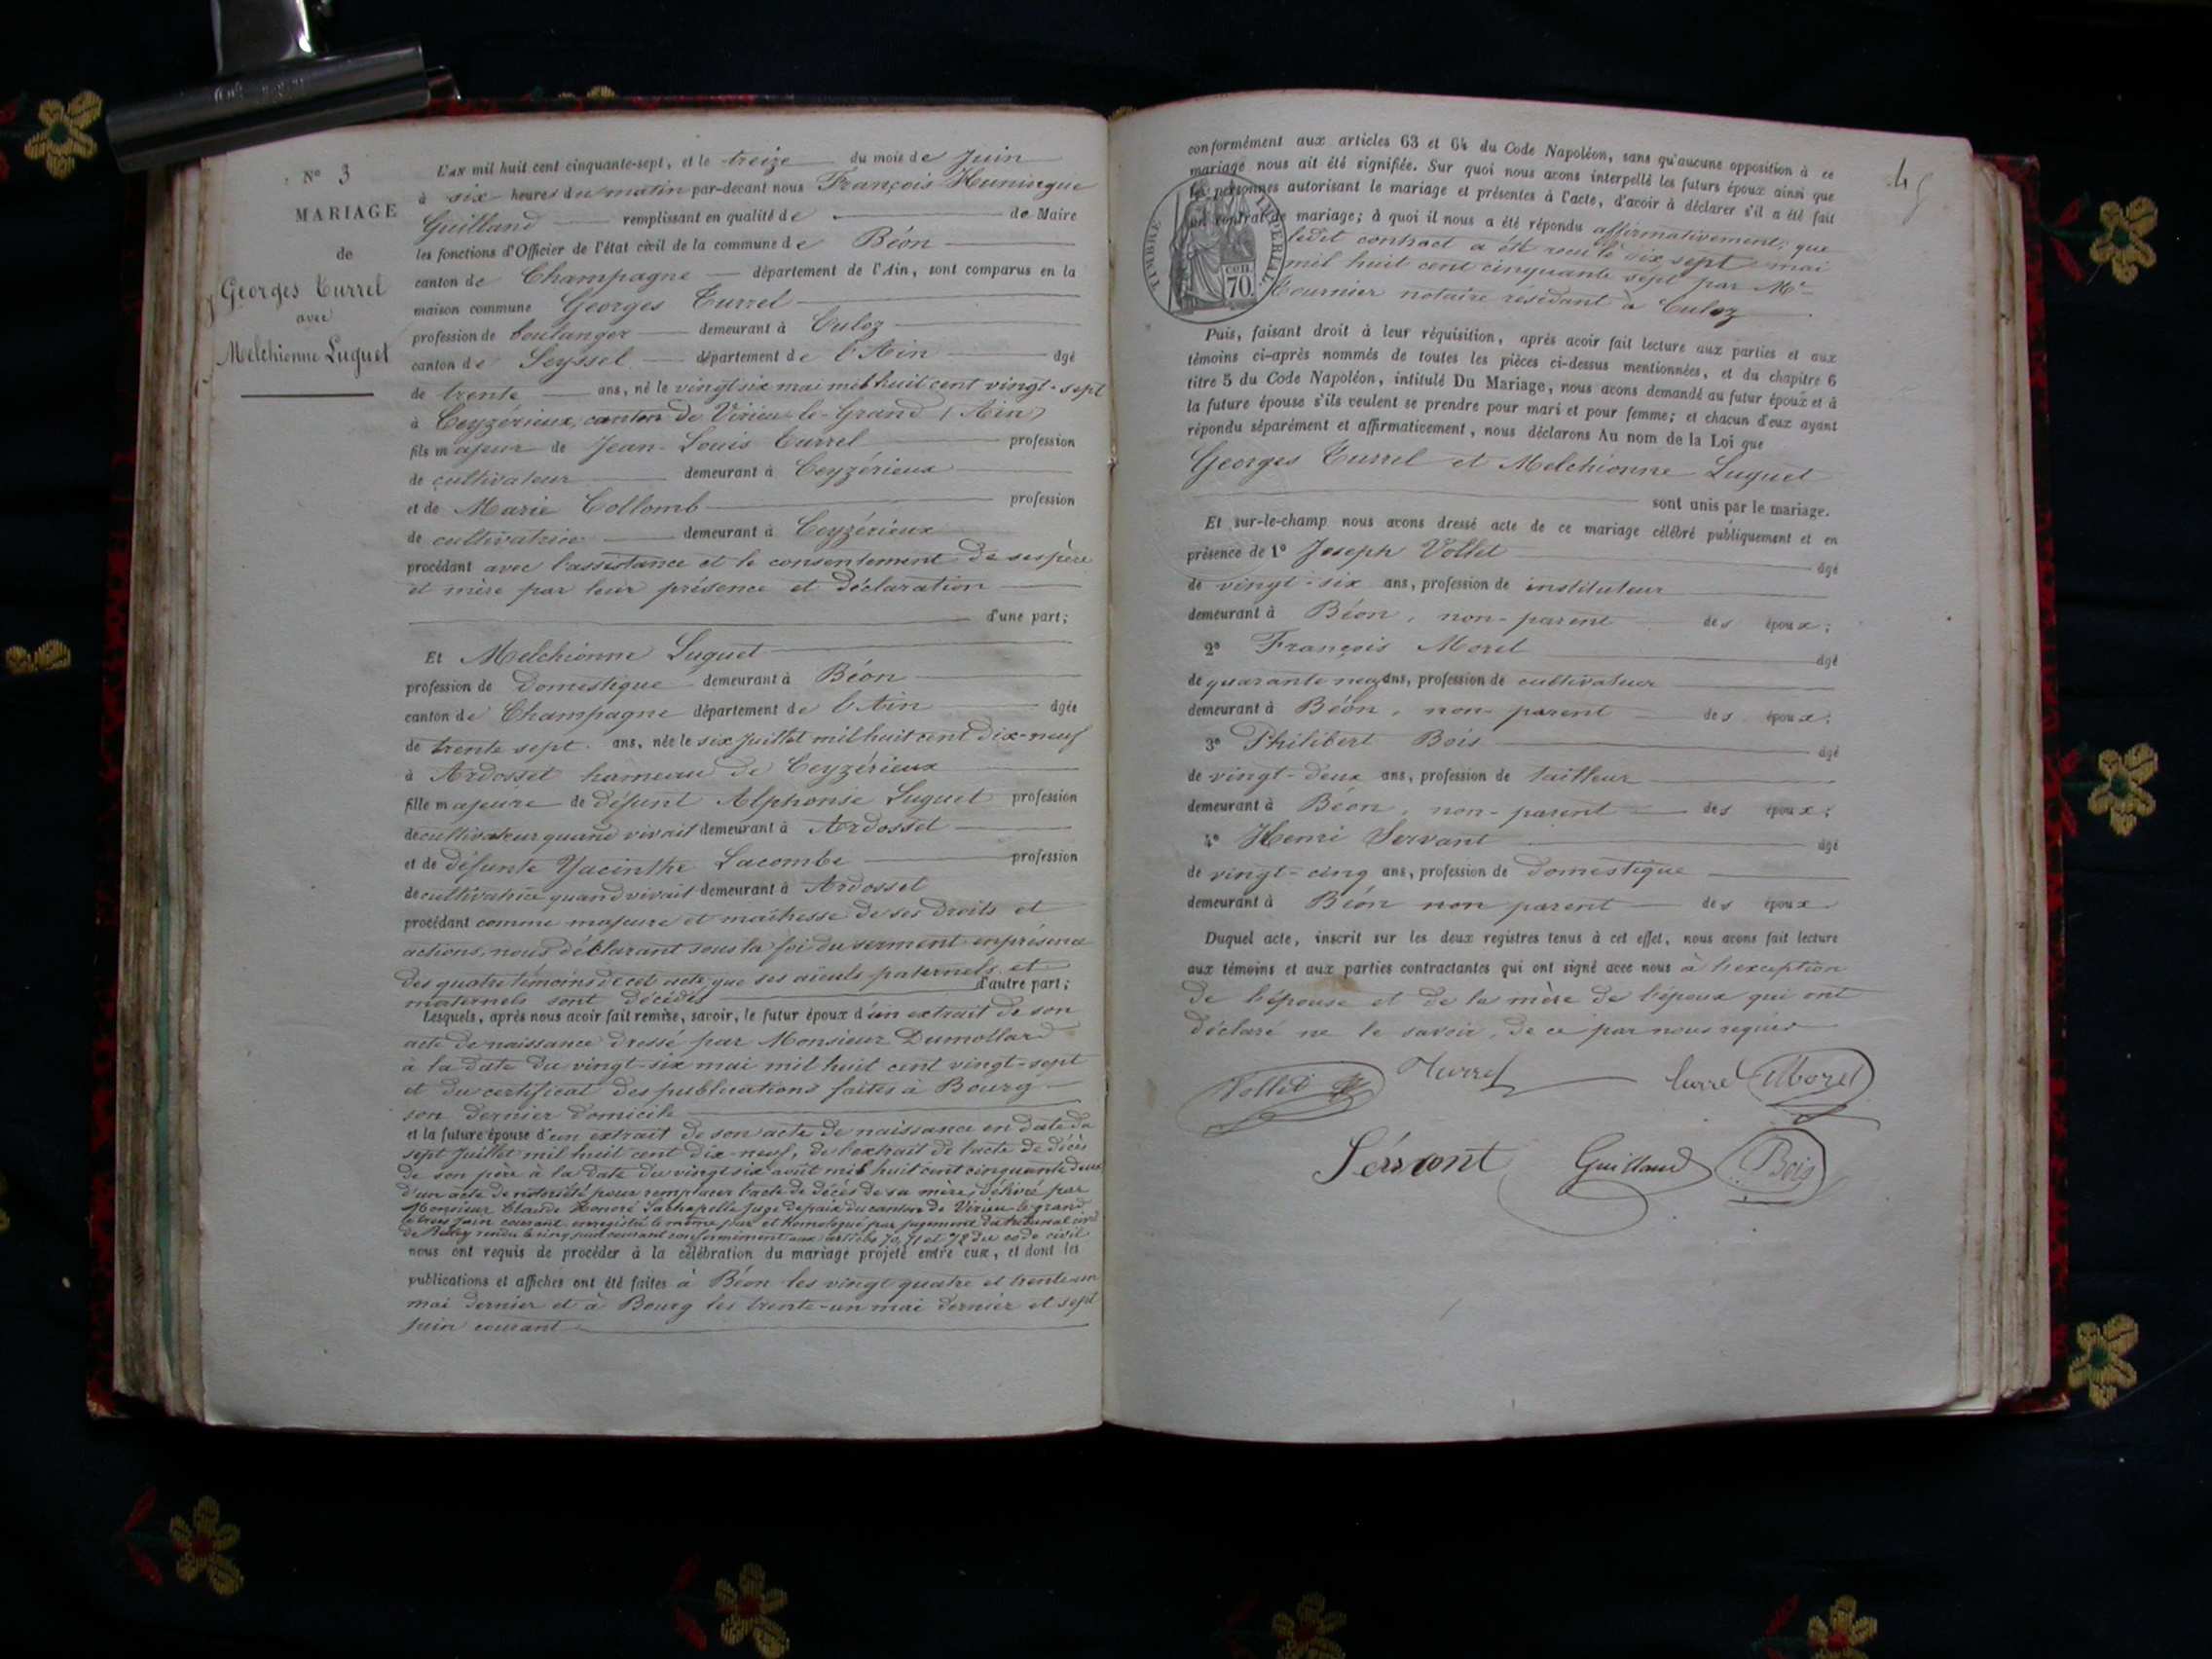 N° 3
MARIAGE
de
Georges Turrel
avec
Melchionne Luguet
L'AN mil huit cent cinquante-sept, et le treize du mois de Juin
à six heures du matin par-devant nous François
Guilland remplissant en qualité de de Maire
les fonctions d'Officier de l'état civil de la commune de Béon
canton de Champagne département de l'Ain, sont comparus en la
maison commune Georges Turrel
profession de boulanger demeurant à Culoz
canton de Seyssel département de l'Ain âgé
de trente ans, né le vingt six mai mil huit cent vingt-sept
à Ceyzérieux, canton de Virieu-le-Grand (Ain)
fils majeur de Jean-Louis Turrel profession
de cultivateur demeurant à Ceyzérieux
et de Marie Collomb profession
de cultivatrice demeurant à Ceyzérieux
procédant avec l'assistance et le consentement de ses père
et mère par leur présence et déclaration
d'une part;
Et Melchionne Luguet
profession de domestique demeurant à Béon
canton de Champagne département de l'Ain âgée
de trente sept ans, née le six Juillet mil huit cent dix-neuf
à Ardosset hameau de Ceyzérieux
fille majeure de défunt Alphonse Luguet profession
de cultivateur quand vivait demeurant à Ardosset
et de défunte Yacinthe Lacombe profession
de cultivatrice quand vivait demeurant à Ardosset
procédant comme majeure et maîtresse de ses droits et
actions, nous déclarant sous la foi du serment en présence
des quatre témoins de cet acte que ses aïeuls paternels et
d'autre part;
maternels sont décédés
Lesquels, après nous avoir fait remise, savoir, le futur époux d'un extrait de son
acte de naissance dressé par Monsieur Dumollard
à la date du vingt-six mai mil huit cent vingt-sept
et du certificat des publications faites à Bourg
son dernier domicile
et la future épouse d'un extrait de son acte de naissance en date du
sept Juillet mil huit cent dix-neuf, de l'extrait de l'acte de décès
de son père à la date du vingt six août mil huit cent cinquante deux
d'un acte de notoriété pour remplacer l'acte de décès de sa mère, délivré par
Monsieur Claude Honoré Lachapelle Juge de paix du canton de Virieu-le-grand
le trois Juin courant enregistré le même jour et homologué par jugement du tribunal civil
de Belley rendu le cinq Juin courant conformément aux articles 70, 71 et 72 du code civil
nous ont requis de procéder à la célébration du mariage projeté entre eux, et dont les
publications et affiches ont été faites à Béon les vingt quatre et trente-un
mai dernier et à Bourg les trente-un mai dernier et sept
Juin courant
conformément aux articles 63 et 64 du Code Napoléon, sans qu'aucune opposition à ce
mariage nous ait été signifiée. Sur quoi nous avons interpellé les futurs époux ainsi que
les personnes autorisant le mariage et présentes à l'acte, d'avoir à déclarer s'il a été fait
un contrat de mariage; à quoi il nous a été répondu affirmativement; que
ledit contract a été reçu le dix sept mai
mil huit cent cinquante sept par Me
Fournier notaire résidant à Culoz
TIMBRE IMPERIAL
CEN.
70
Puis, faisant droit à leur réquisition, après avoir fait lecture aux parties et aux
témoins ci-après nommés de toutes les pièces ci-dessus mentionnées, et du chapitre 6
titre 5 du Code Napoléon, intitulé Du Mariage, nous avons demandé au futur époux et à
la future épouse s'ils veulent se prendre pour mari et pour femme; et chacun d'eux ayant
répondu séparément et affirmativement, nous déclarons Au nom de la Loi que
Georges Turrel et Melchionne Luguet
sont unis par le mariage.
Et sur-le-champ nous avons dressé acte de ce mariage célébré publiquement et en
présence de 1° Joseph Vollet âgé
de vingt-six ans, profession de instituteur
demeurant à Béon, non-parent des époux;
2° François Morel âgé
de quarante neuf ans, profession de cultivateur
demeurant à Béon, non-parent des époux;
3° Philibert Bois âgé
de vingt-deux ans, profession de tailleur
demeurant à Béon, non-parent des époux;
4° Henri Servant âgé
de vingt-cinq ans, profession de domestique
demeurant à Béon non parent des époux
Duquel acte, inscrit sur les deux registres tenus à cet effet, nous avons fait lecture
aux témoins et aux parties contractantes qui ont signé avec nous à l'exception
de l'épouse et de la mère de l'époux qui ont
déclaré ne le savoir, de ce par nous requis
Vollet Turrel Turrel Morel
Servant Guilland Bois